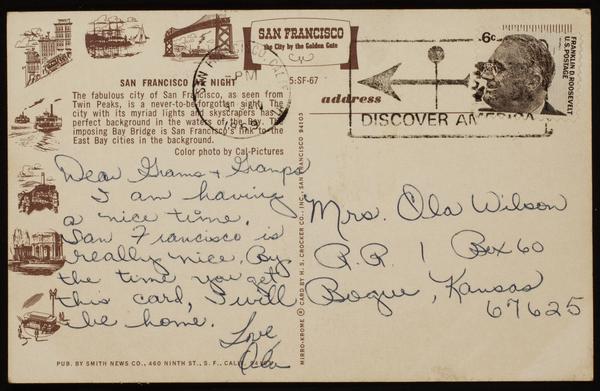 SAN FRANCISCO
the City by the Golden Gate
6c
FRANKLIN D. ROOSEVELT
U.S. POSTAGE
PM
DISCOVER AMERICA
SAN FRANCISCO BY NIGHT
5:SF-67
The fabulous city of San Francisco, as seen from
Twin Peaks, is a never-to-be-forgotten sight. The
city with its myriad lights and skyscrapers has a
perfect background in the waters of the Bay. The
imposing Bay Bridge is San Francisco's link to the
East Bay cities in the background.
Color photo by Cal-Pictures
address
Dear Grams + Gramps
I am having
a nice time.
San Francisco is
really nice. By
the time you get
this card, I will
be home.
Love
MIRRO-KROME ® CARD BY H. S. CROCKER CO., INC., SAN FRANCISCO 94103
Mrs. Ola Wilson
R.R. 1 Box 60
Bogue, Kansas
67625
PUB. BY SMITH NEWS CO., 460 NINTH ST., S. F., CALIF.